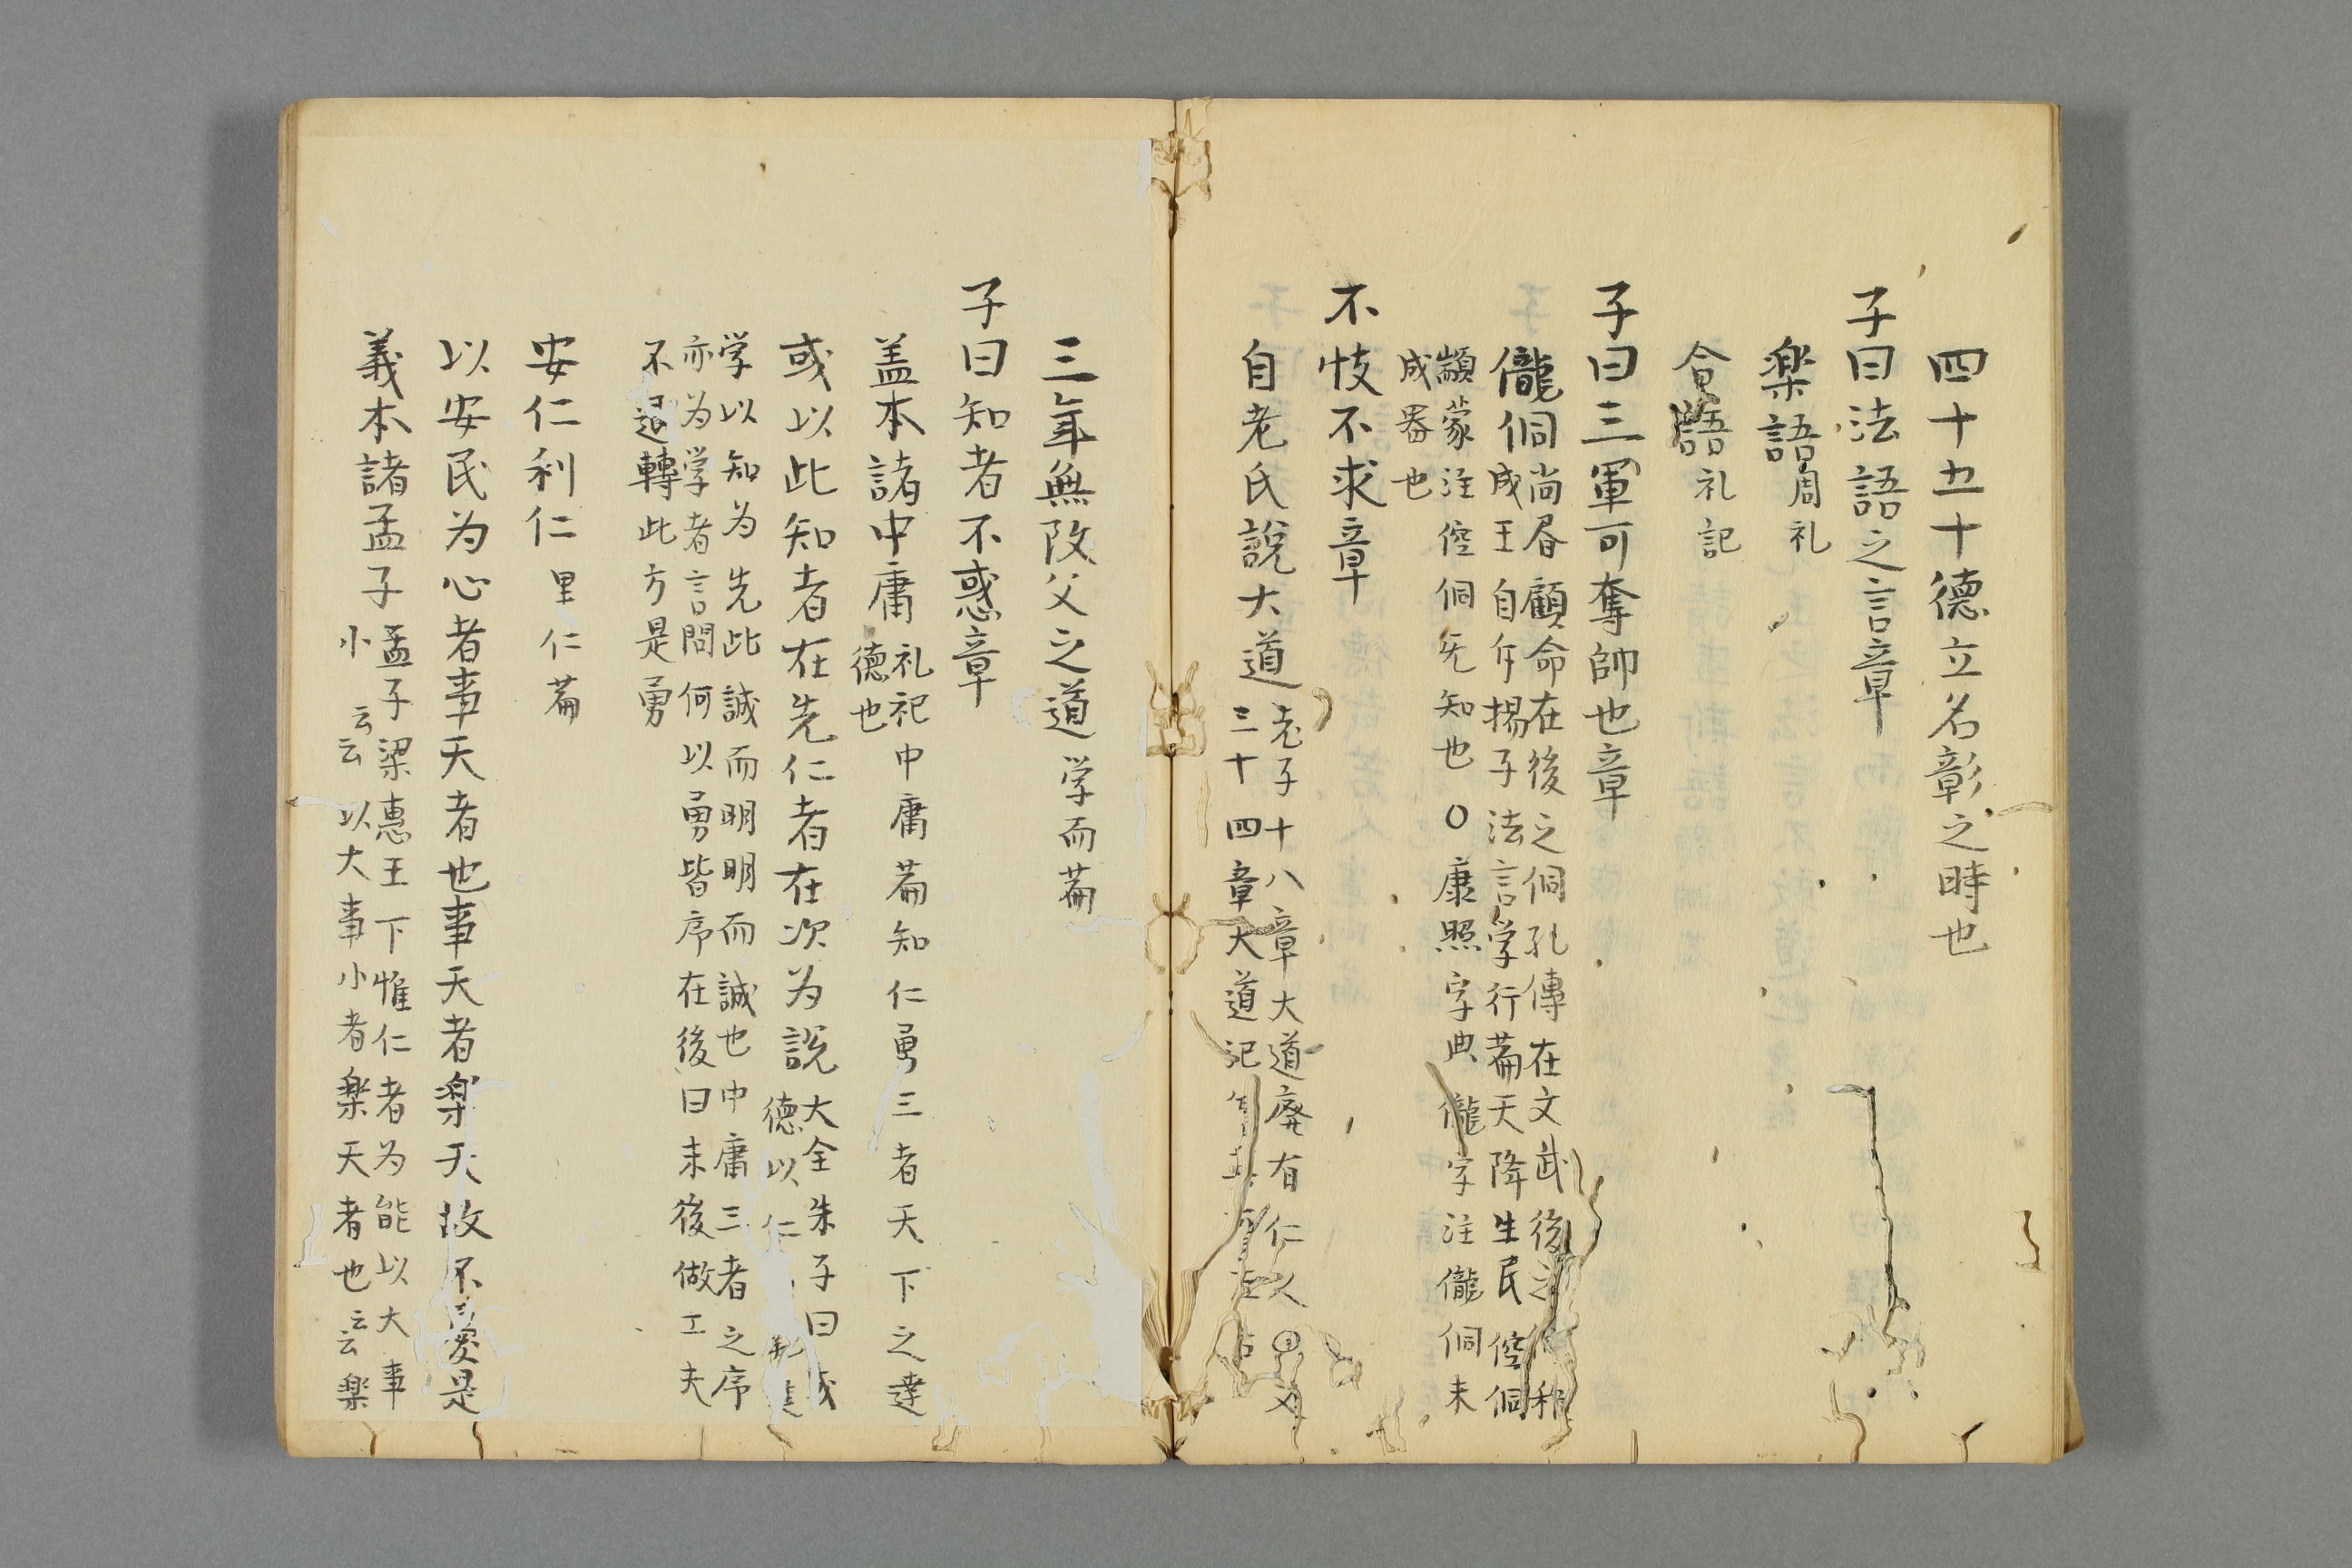 四十五十德立名彰之時也
子曰法語之言章
楽語周礼
合語礼記
子曰三軍可奪帥也章
儱侗
尚昏顧命在後之侗孔傳在文武後之侗稚
成王自斥揚子法言学行萹天降生民倥侗
顓蒙注倥侗无知也〇康熙字典儱字注儱侗未
成器也
不忮不求章
自老氏說大道
老子十八章大道廃有仁义
三十四章大道氾
三年無改父之道学而萹
子曰知者不惑章
盖本諸中庸
礼祀中庸萹知仁勇三者天下之達
德也
或以此知者在先仁者在次为說
大全朱子曰成
德以仁
学以知为先此誠而明明而誠也中庸三者之序
亦为学者言問何以勇皆序在後曰末後做工夫
不退轉此方是勇
安仁利仁里仁萹
以安民为心者事天者也事天者楽天故不憂是
義本諸孟子
孟子梁惠王下惟仁者为能以大事
小云云以大事小者楽天者也云云楽